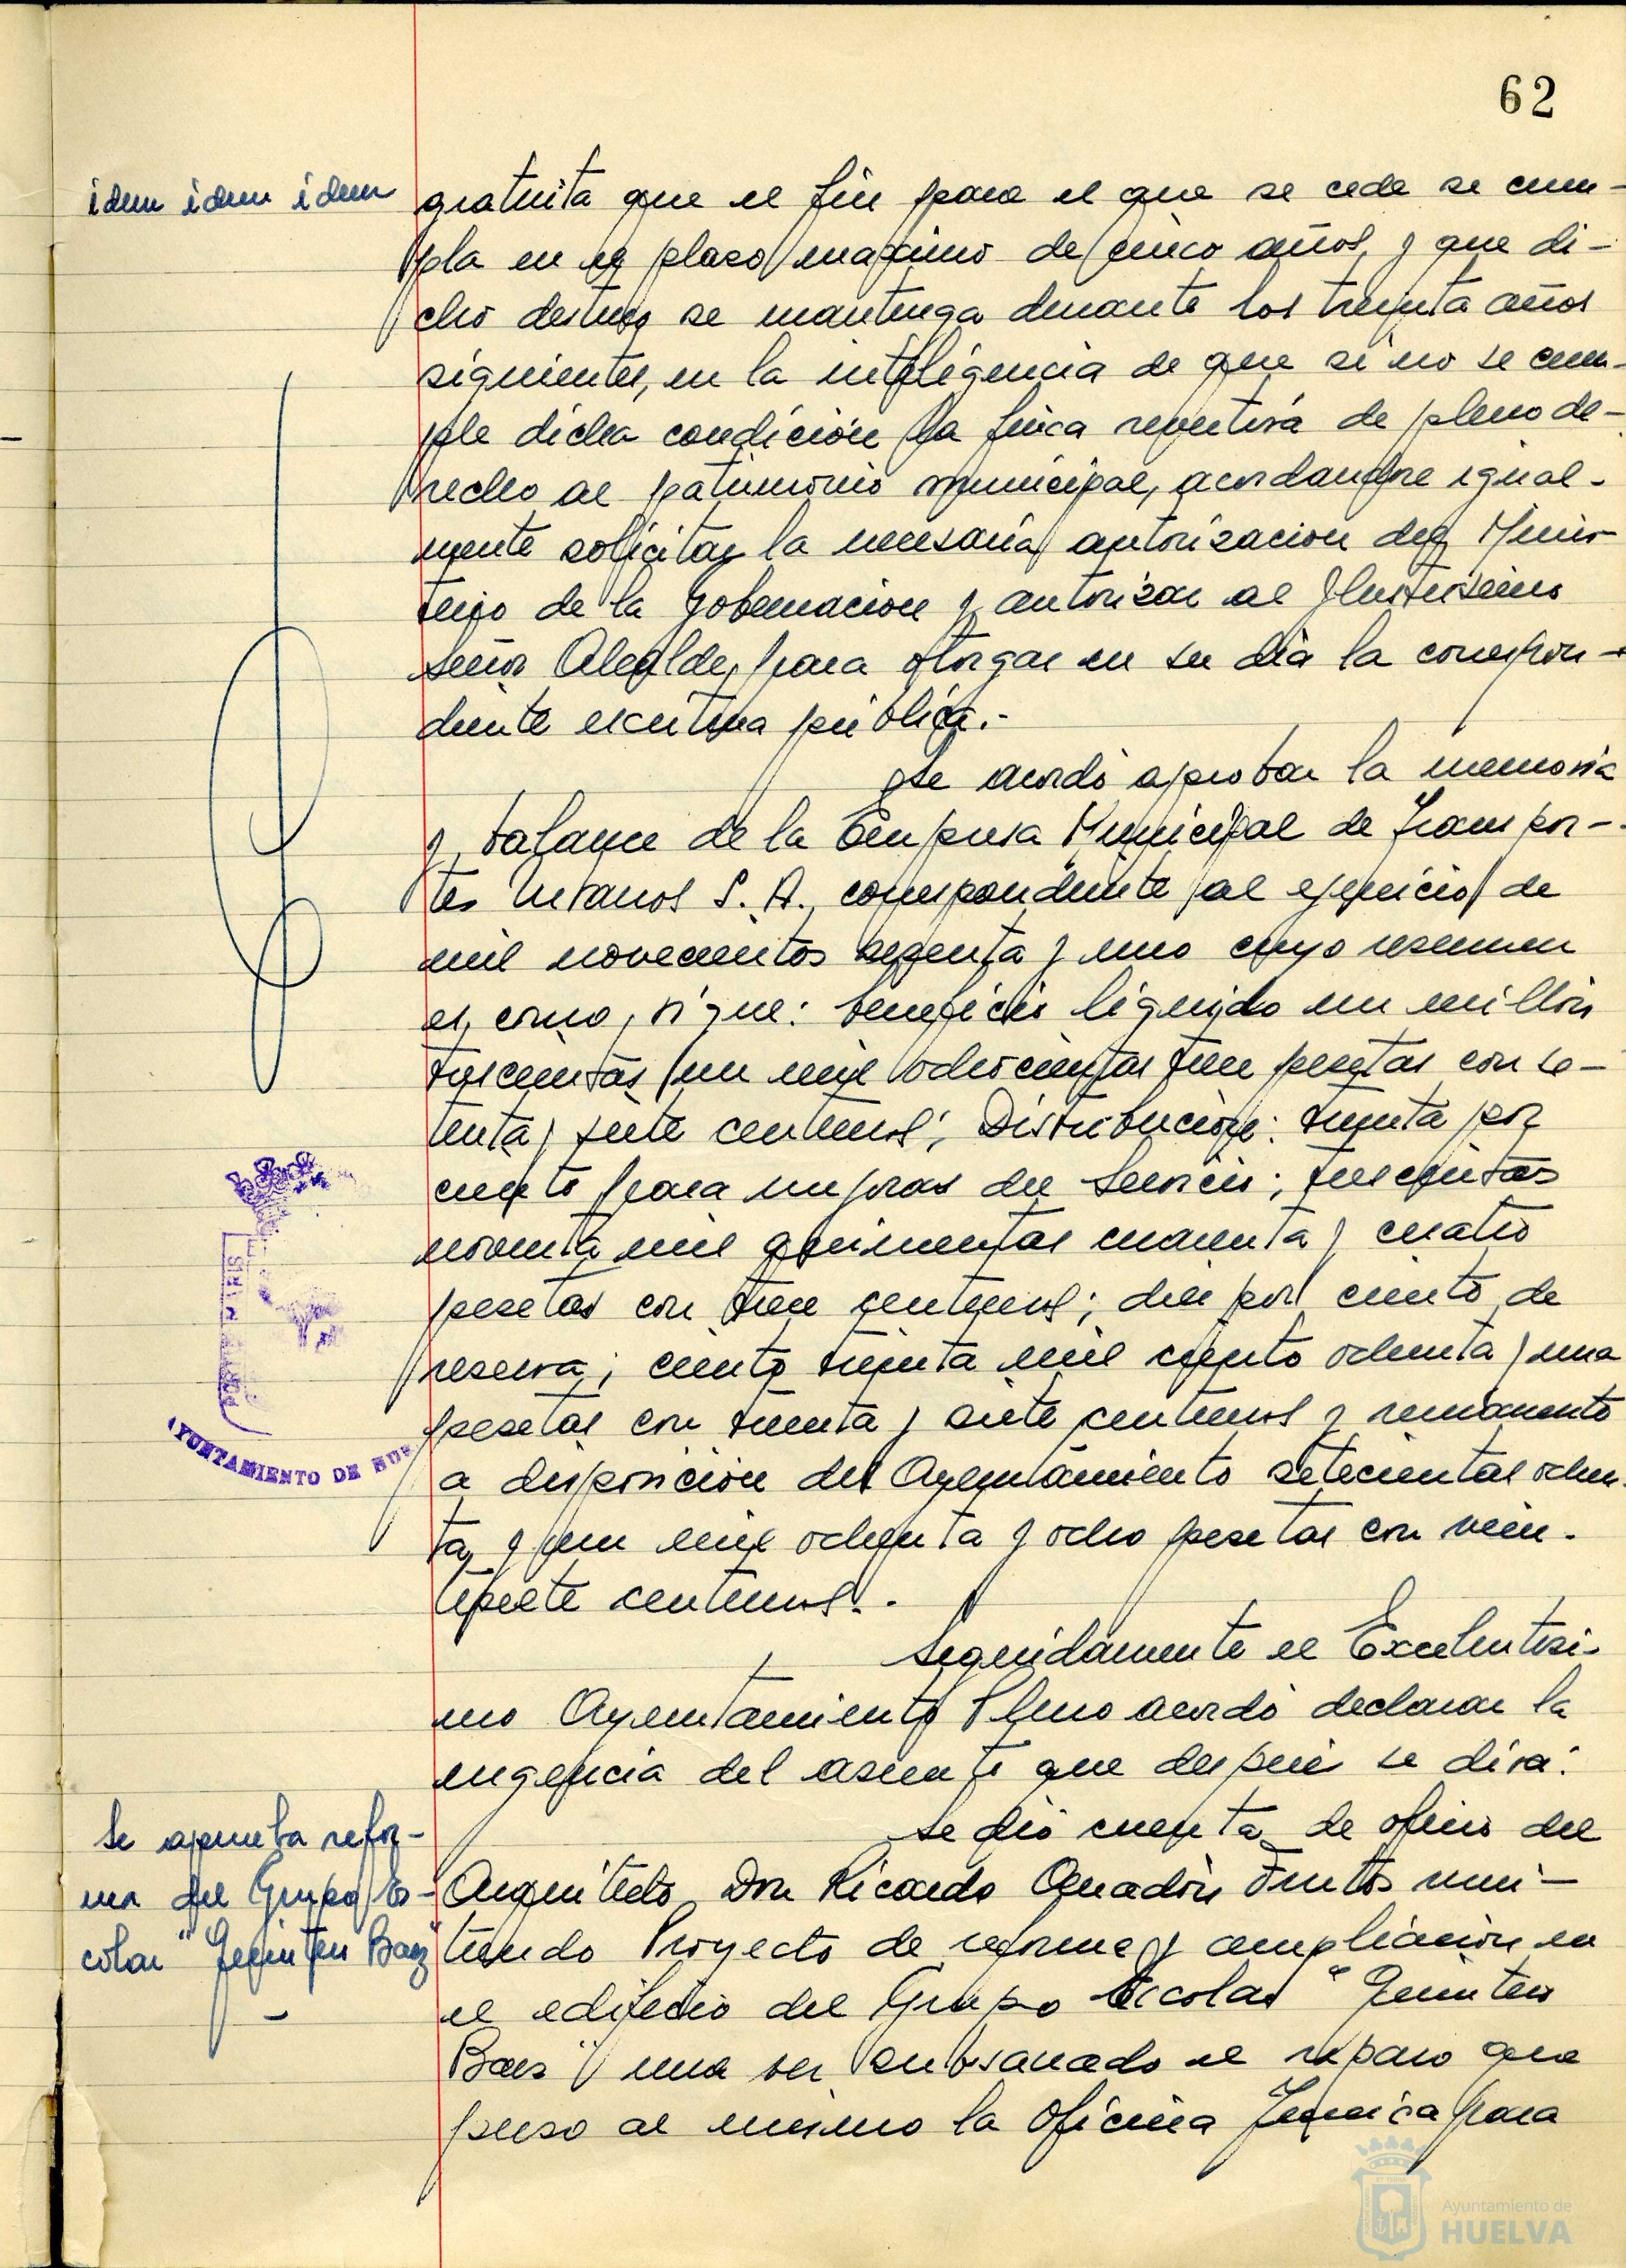 62
idem idem idem
gratuita que el fin para el que se cede se cum-
pla en el plazo maximo de cinco años, y que di-
cho destino se mantenga durante los treinta años
siguientes, en la inteligencia de que si no se cum-
ple dicha condición la finca revertirá de pleno de-
recho al patrimonio municipal, acordandose igual-
mente solicitar la necesaria autorizacion del Minis-
terio de la Gobernacion y autorizar al Ilustrisimo
señor Alcalde, para otorgar en su dia la correspon-
diente escritura pública.-
Se acordó aprobar la memoria
y balance de la Empresa Municipal de Transpor-
tes Urbanos S. A., correspondiente al ejercicio de
mil novecientos sesenta y uno cuyo resumen
es como sigue: beneficio liquido un millón
trescientas un mil ochocientas trece pesetas con se-
tenta y siete centimos; Distribución: treinta por
ciento para mejoras del Servicio; trescientas
noventa mil quinientas cuarenta y cuatro
pesetas con trece centimos; diez por ciento de
reserva; ciento treinta mil ciento ochenta y una
pesetas con treinta y siete centimos y remanente
a disposición del Ayuntamiento setecientas ochen-
ta y un mil ochenta y ocho pesetas con vein-
tisiete centimos.-
Seguidamente el Excelentisi-
mo Ayuntamiento Pleno acordó declarar la
urgencia del asunto que despues se dirá:
Se aprueba refor-
ma del Grupo Es-
colar "Quintero Baez"
Se dió cuenta de oficio del
Arquitecto Don Ricardo Anadón Frutos remi-
tiendo Proyecto de reforma y ampliación en
el edificio del Grupo Escolar "Quintero
Baez" una vez subsanado el reparo que
puso al mismo la Oficina Tecnica para
AYUNTAMIENTO DE HUE
Ayuntamiento de
HUELVA